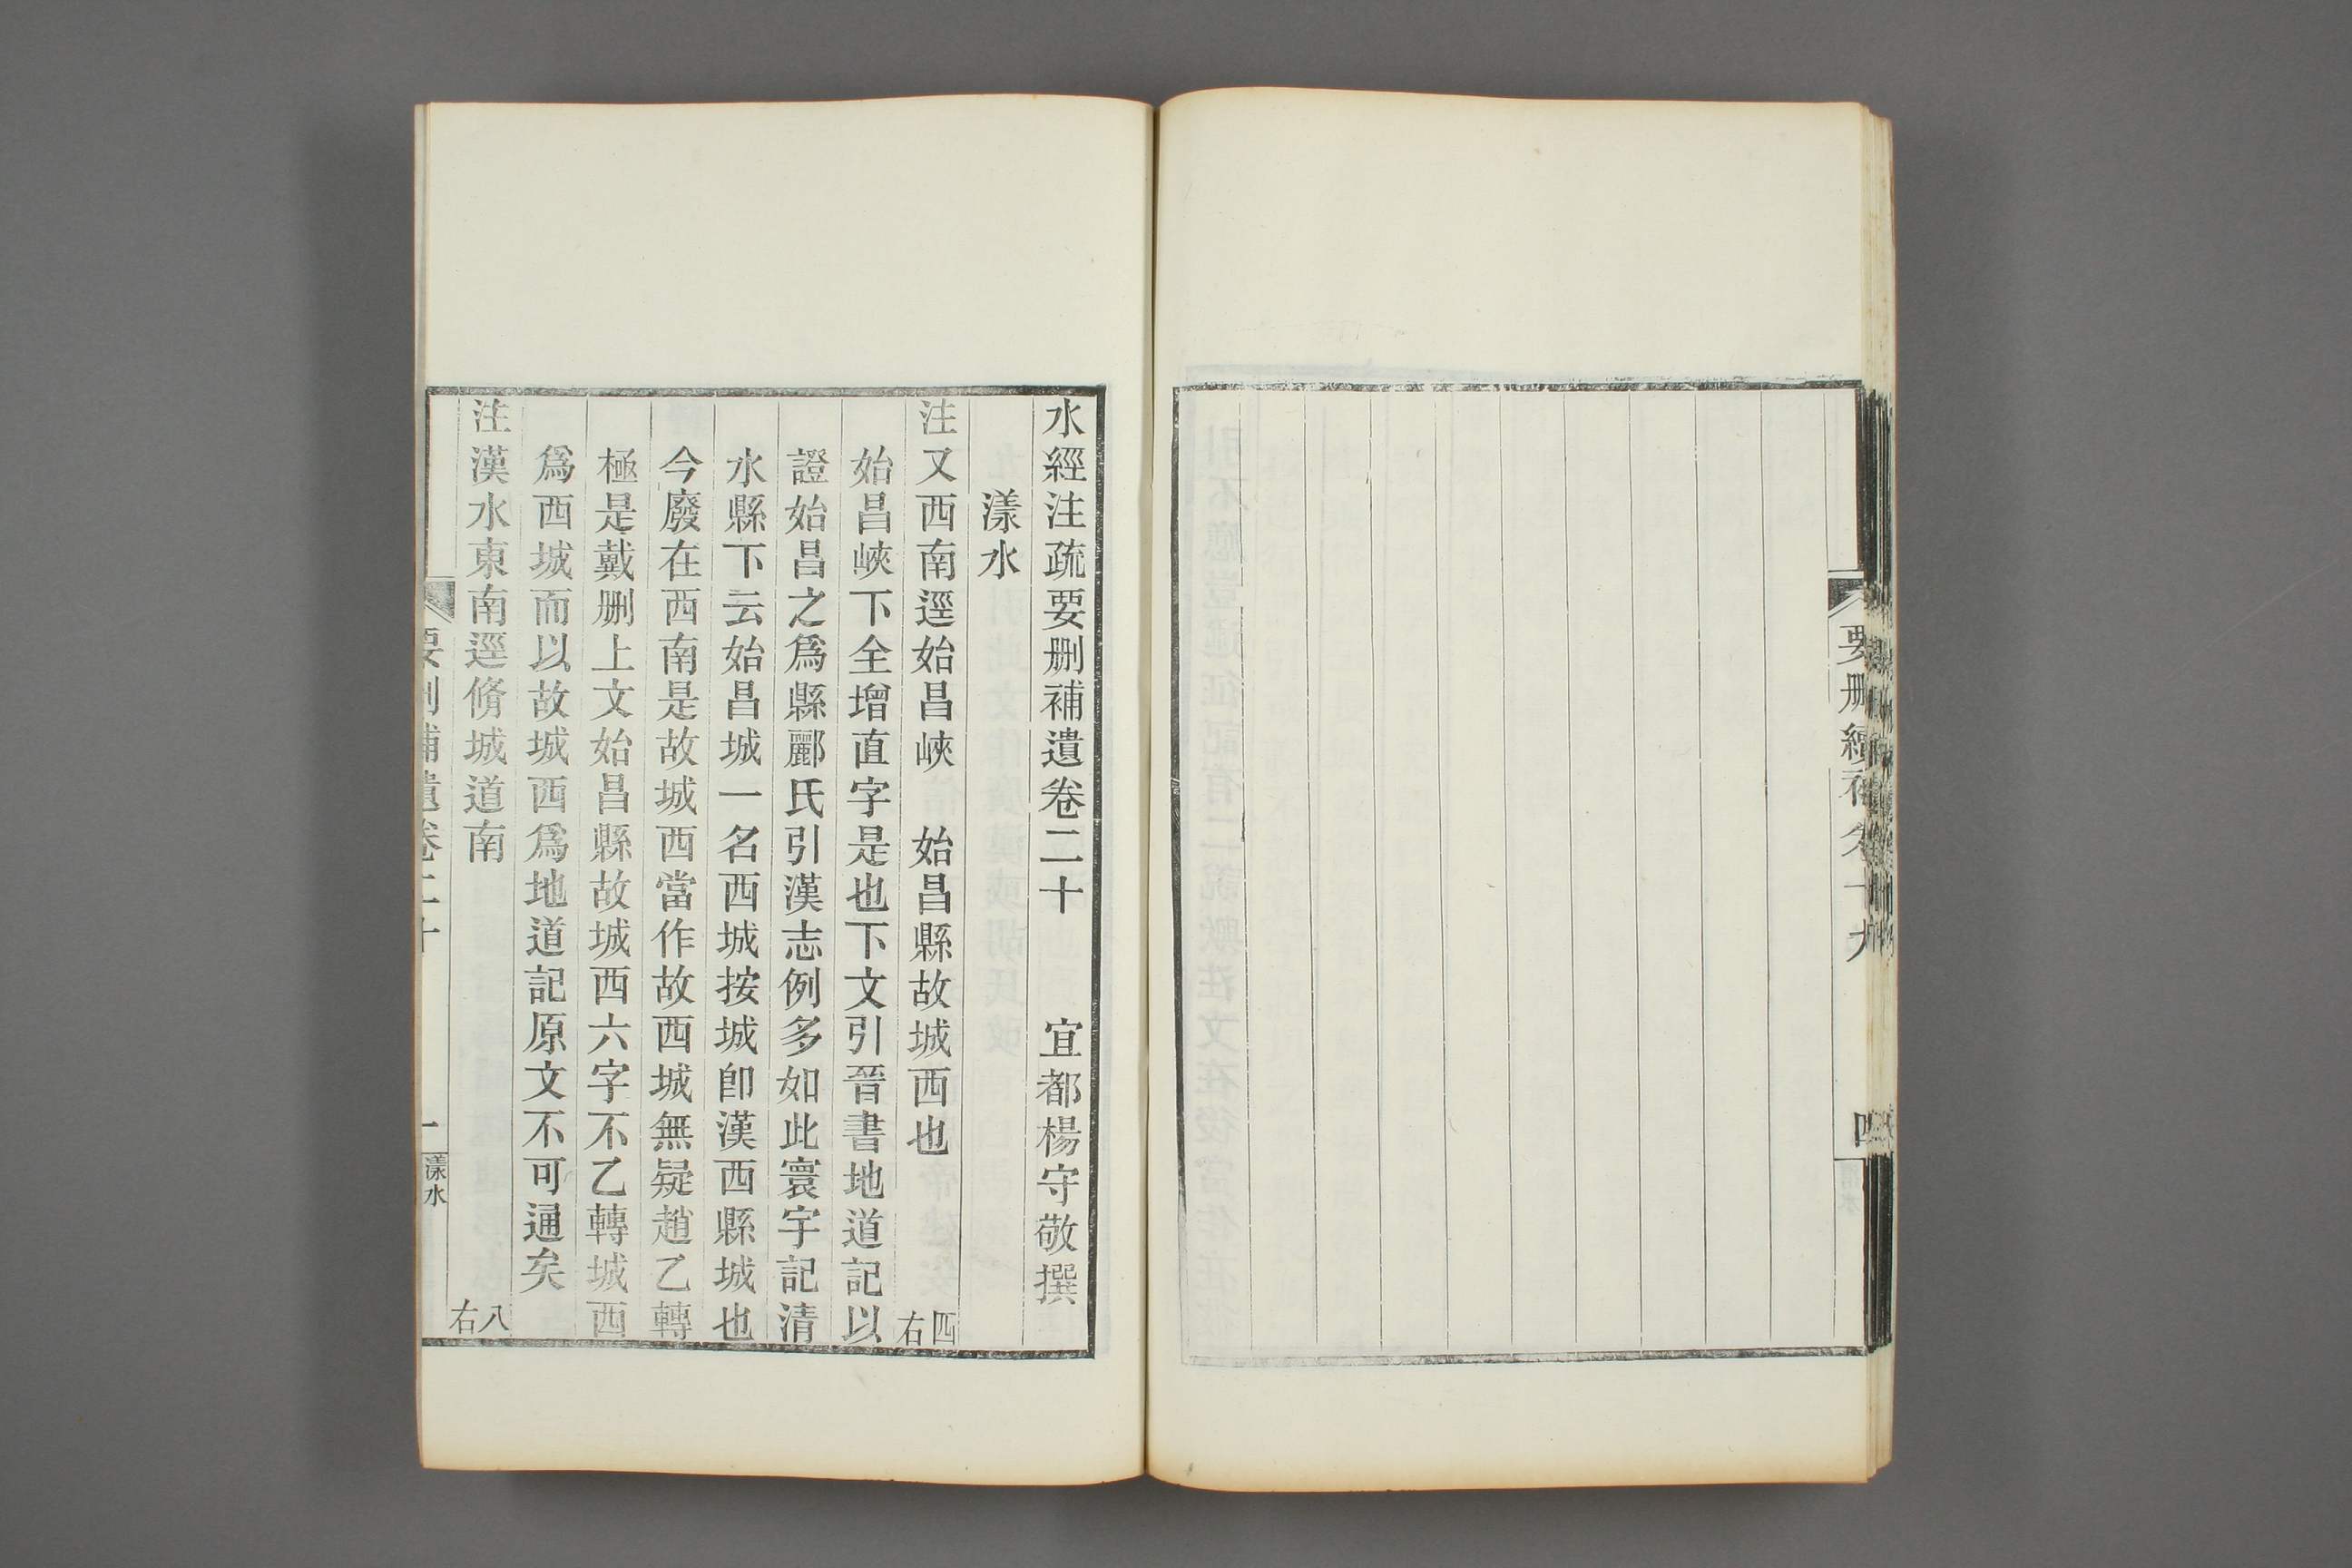 要删續補卷十九
四
水經注疏要删補遺卷二十　宜都楊守敬撰
漾水
注又西南逕始昌峽　始昌縣故城西也　四右
始昌峽下全增直字是也下文引晉書地道記以
證始昌之爲縣酈氏引漢志例多如此寰宇記清
水縣下云始昌城一名西城按城卽漢西縣城也
今廢在西南是故城西當作故西城無疑趙乙轉
極是戴删上文始昌縣故城西六字不乙轉城西
爲西城而以故城西爲地道記原文不可通矣
注漢水東南逕脩城道南　八右
要删補遺卷二十
一
漾水